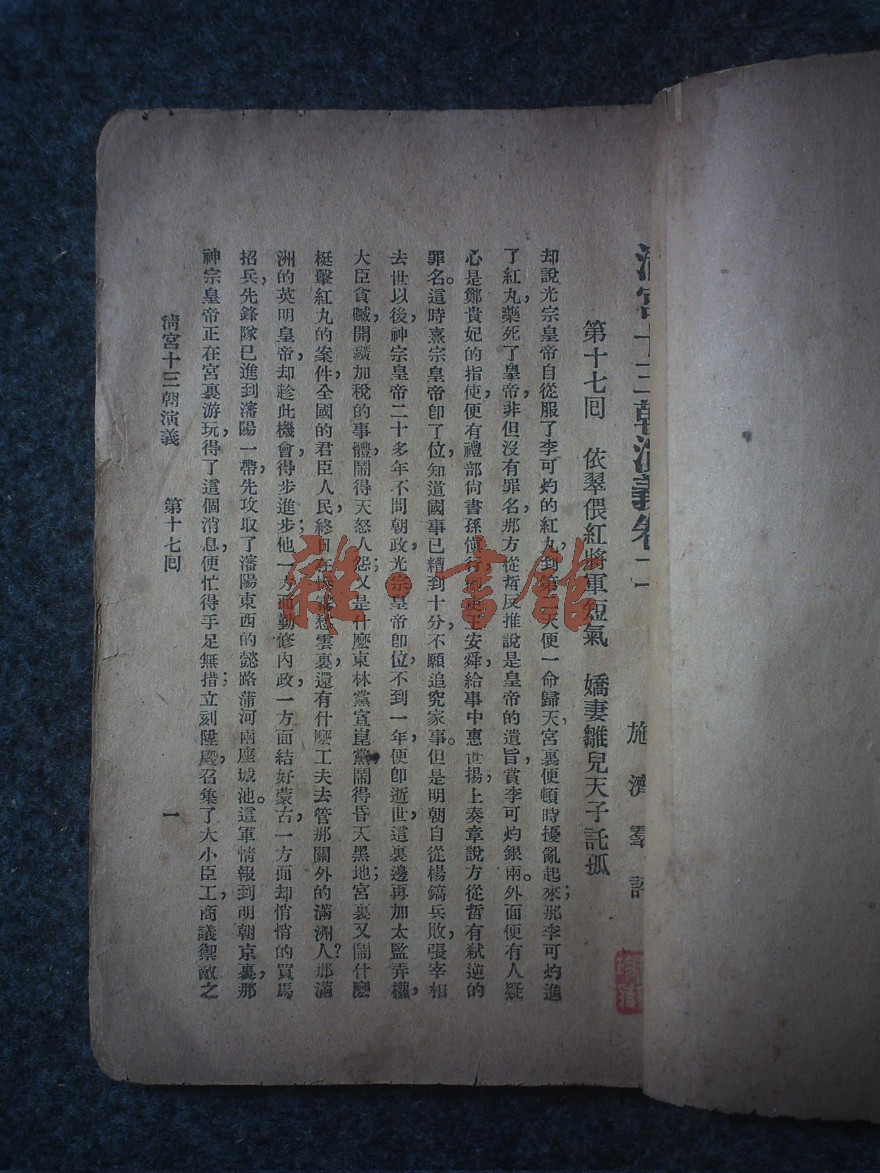 清宮十三朝演義卷二
施濟羣評
第十七囘　依翠偎紅將軍短氣　嬌妻雛兒天子託孤
却說光宗皇帝自從服了李可灼的紅丸，到第二天便一命歸天，宮裏便頓時擾亂起來；那李可灼進
了紅丸，藥死了皇帝，非但沒有罪名，那方從哲反推說是皇帝的遺旨，賞李可灼銀兩。外面便有人疑
心是鄭貴妃的指使，便有禮部尙書孫愼行，御史王安舜，給事中惠世揚，上奏章說方從哲有弒逆的
罪名。這時熹宗皇帝卽了位，知道國事已糟到十分，不願追究家事。但是明朝自從楊鎬兵敗，張宰相
去世以後，神宗皇帝二十多年不問朝政，光宗皇帝卽位不到一年，便卽逝世，這裏邊再加太監弄權，
大臣貪贓，開礦加稅的事體，鬧得天怒人怨；又是什麽東林黨宣崑黨鬧得昏天黑地；宮裏又鬧什麽
梃擊紅丸的案件，全國的君臣人民，終日在愁雲裏，還有什麽工夫去管那關外的滿洲人？那滿
洲的英明皇帝，却趁此機會，得步進步；他一方面勤修內政，一方面結好蒙古，一方面却悄悄的買馬
招兵，先鋒隊已進到瀋陽一帶，先攻取了瀋陽東西的懿路蒲河兩座城池。這軍情報到明朝京裏，那
神宗皇帝正在宮裏游玩，得了這個消息，便忙得手足無措；立刻陞殿，召集了大小臣工，商議禦敵之
清宮十三朝演義　第十七囘　一
雜·書館